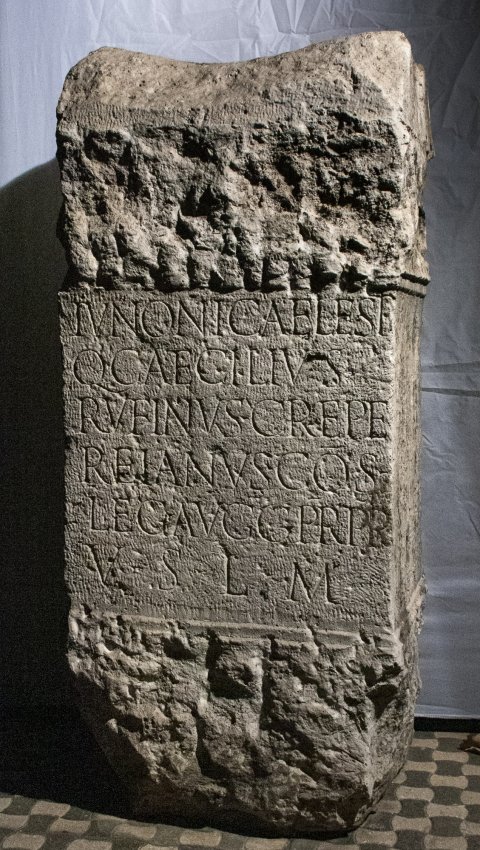 IVNONI CAELESTI
Q CAECILIVS
RVFINVS CREPE
REIANVS COS
LEG AVGG PR PR
V S L M